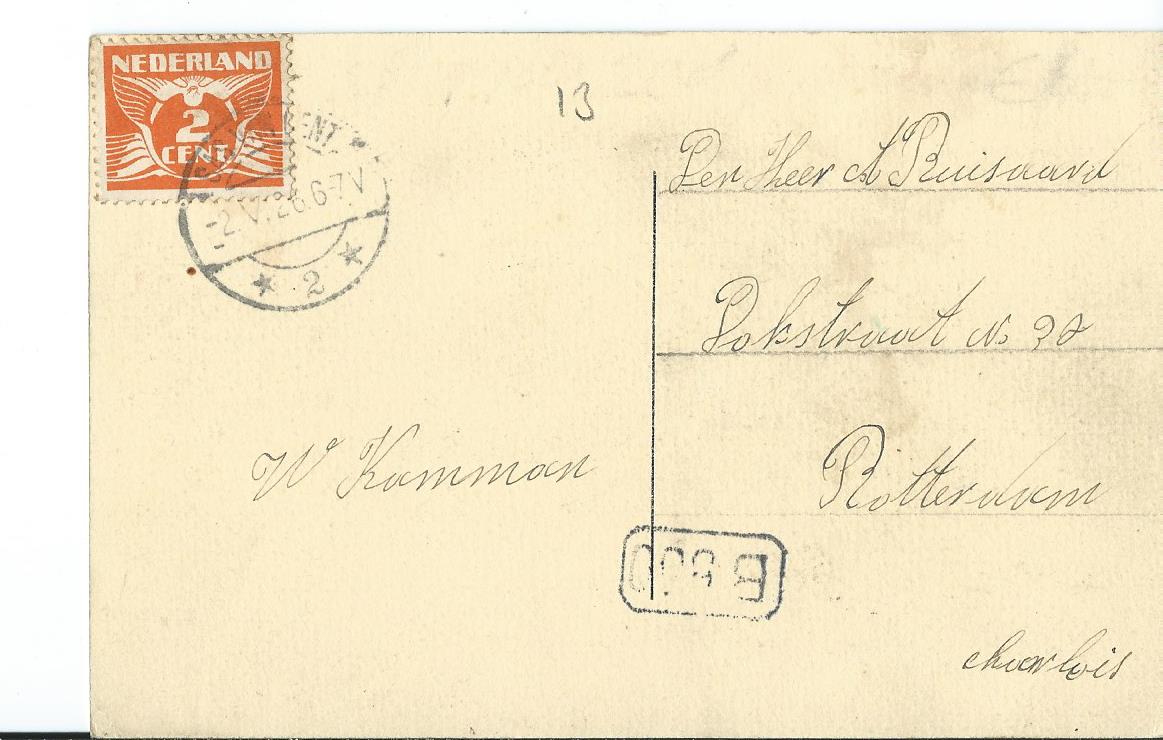 NEDERLAND
2
CENT
-2.V.26.6-7V
2
13
Den Heer A Buisaard
Dokstraat No 32
Rotterdam
W Kamman
B 500
charlois